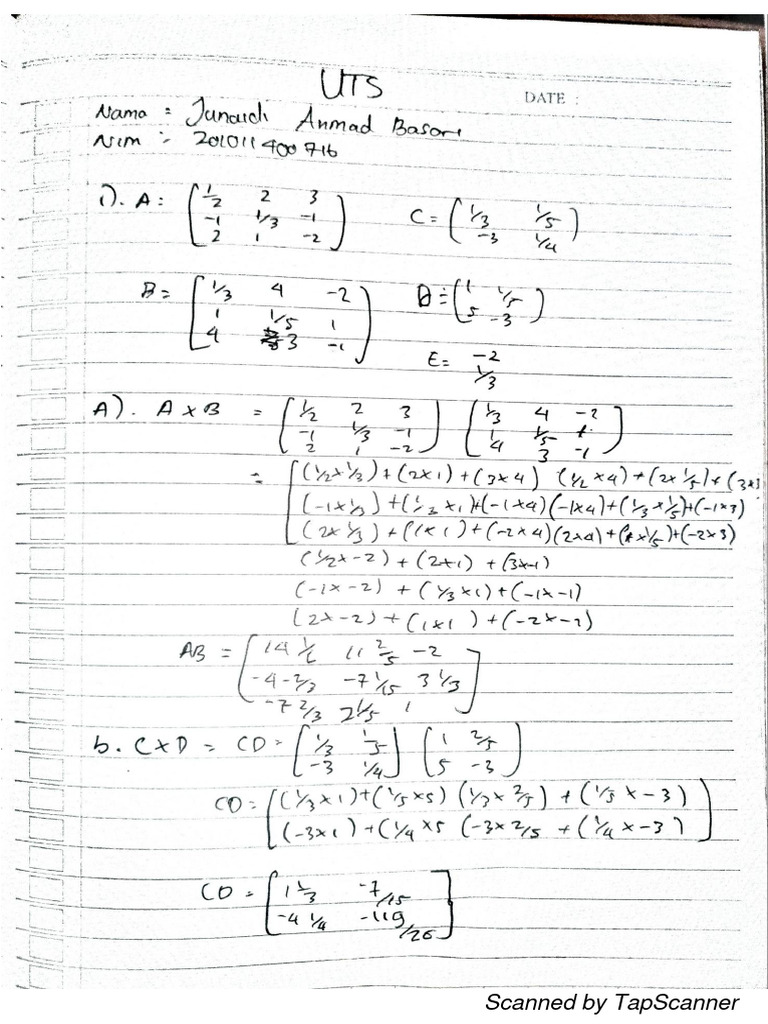 UTS
DATE :
Nama : Junaidi Ahmad Basori
Nim : 201011400716
1). A = ( 1/2 2 3
-1 1/3 -1
2 1 -2 )
C = ( 1/3 1/5
-3 1/4 )
B = [ 1/3 4 -2
1 1/5 1
4 3 -1 )
D = ( 1 1/5
5 -3 )
E = -2
1/3
A). A x B = ( 1/2 2 3
-1 1/3 -1
2 1 -2 ) ( 1/3 4 -2
1 1/5 1
4 3 -1 )
= [ (1/2 x 1/3) + (2x1) + (3x4) (1/2 x 4) + (2x 1/5) + (3x3
(-1x 1/3) + (1/3 x 1) + (-1x4) (-1x4) + (1/3 x 1/5) + (-1x3)
(2x 1/3) + (1x1) + (-2x4) (2x4) + (1x 1/5) + (-2x3)
(1/2 x -2) + (2x1) + (3x-1)
(-1x -2) + (1/3 x 1) + (-1x -1)
(2x -2) + (1x1) + (-2x -1)
AB = [ 14 11 2/5 -2
-4 -2/3 -7 1/15 3 1/3
-7 2/3 2 1/5 1 ]
b. C x D = CD = [ 1/3 1/5
-3 1/4 ] ( 1 2/5
5 -3 )
CD = [ (1/3 x 1) + (1/5 x 5) (1/3 x 2/5) + (1/5 x -3)
(-3x1) + (1/4 x 5 (-3 x 2/5 + (1/4 x -3) ]
CD = [ 1 1/3 -7/15
-4 1/4 -119/26 ]
Scanned by TapScanner